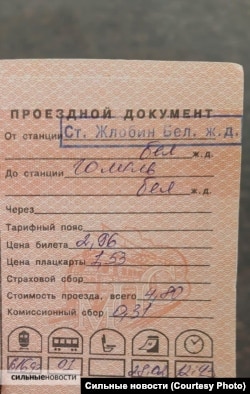 ПРОЕЗДНОЙ ДОКУМЕНТ
От станции Ст. Жлобин Бел. ж.д.
бел ж.д.
До станции гомель
бел ж.д.
Через
Тарифный пояс
Цена билета 2,96
Цена плацкарты 1,53
Страховой сбор
Стоимость проезда, всего 4,80
Комиссионный сбор 0,31
СИЛЬНЫЕНОВОСТИ
Сильные новости (Courtesy Photo)